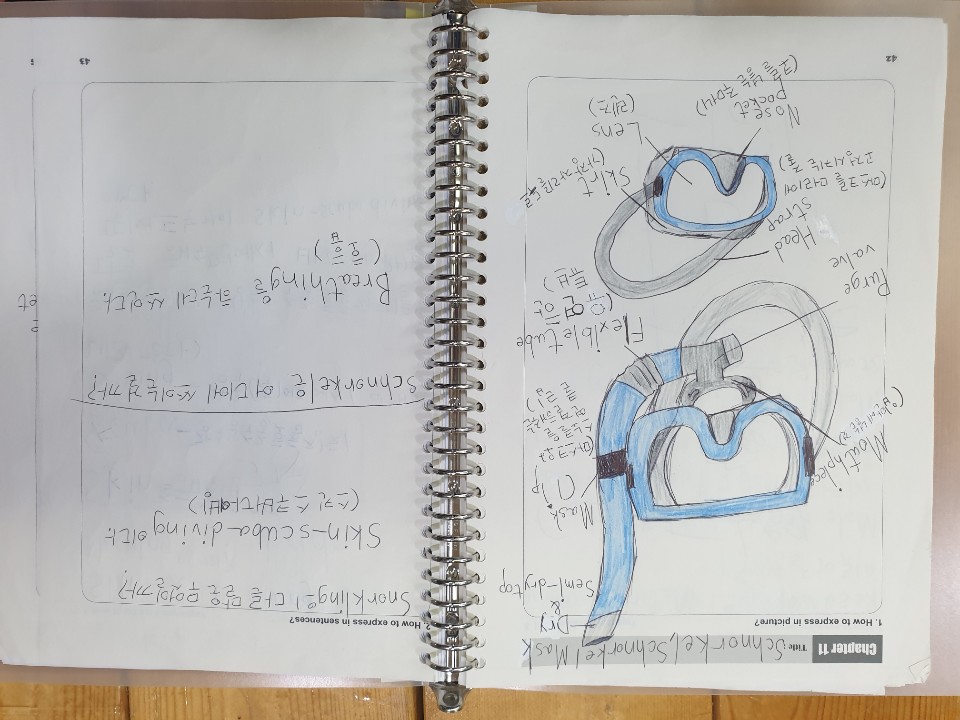 Chapter 11
Title: Schnorkel/Schnorkel Mask
1. How to express in picture?
Dry
&
Semi-dry top
Mask
Clip
(마스크와
스노클을
연결해주는
클립)
Mouthpiece
Flexible tube
(유연한
튜브)
Purge
valve
Head
strap
(마스크를 머리에
고정시키는 줄)
Skirt
Lens
(렌즈)
Nose
pocket
(코를 넣는 주머니)
42
2. How to express in sentences?
Snorkling의 다른 말은 무엇일까?
Skin-scuba diving이다.
(스킨 스쿠버다이빙)
Schnorkel은 어디에 쓰이는 걸까?
Breathing을 하는데 쓰인다.
(호흡)
43